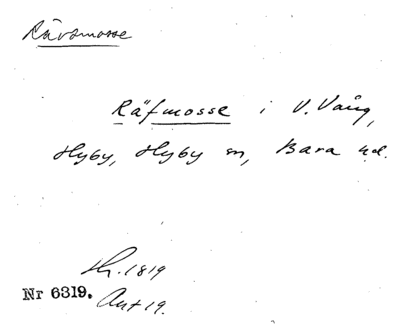 Rävsmosse
Räfmosse i V. Vång,
Hyby, Hyby sn, Bara hd.
1819
Nr 6319. Akt 19.